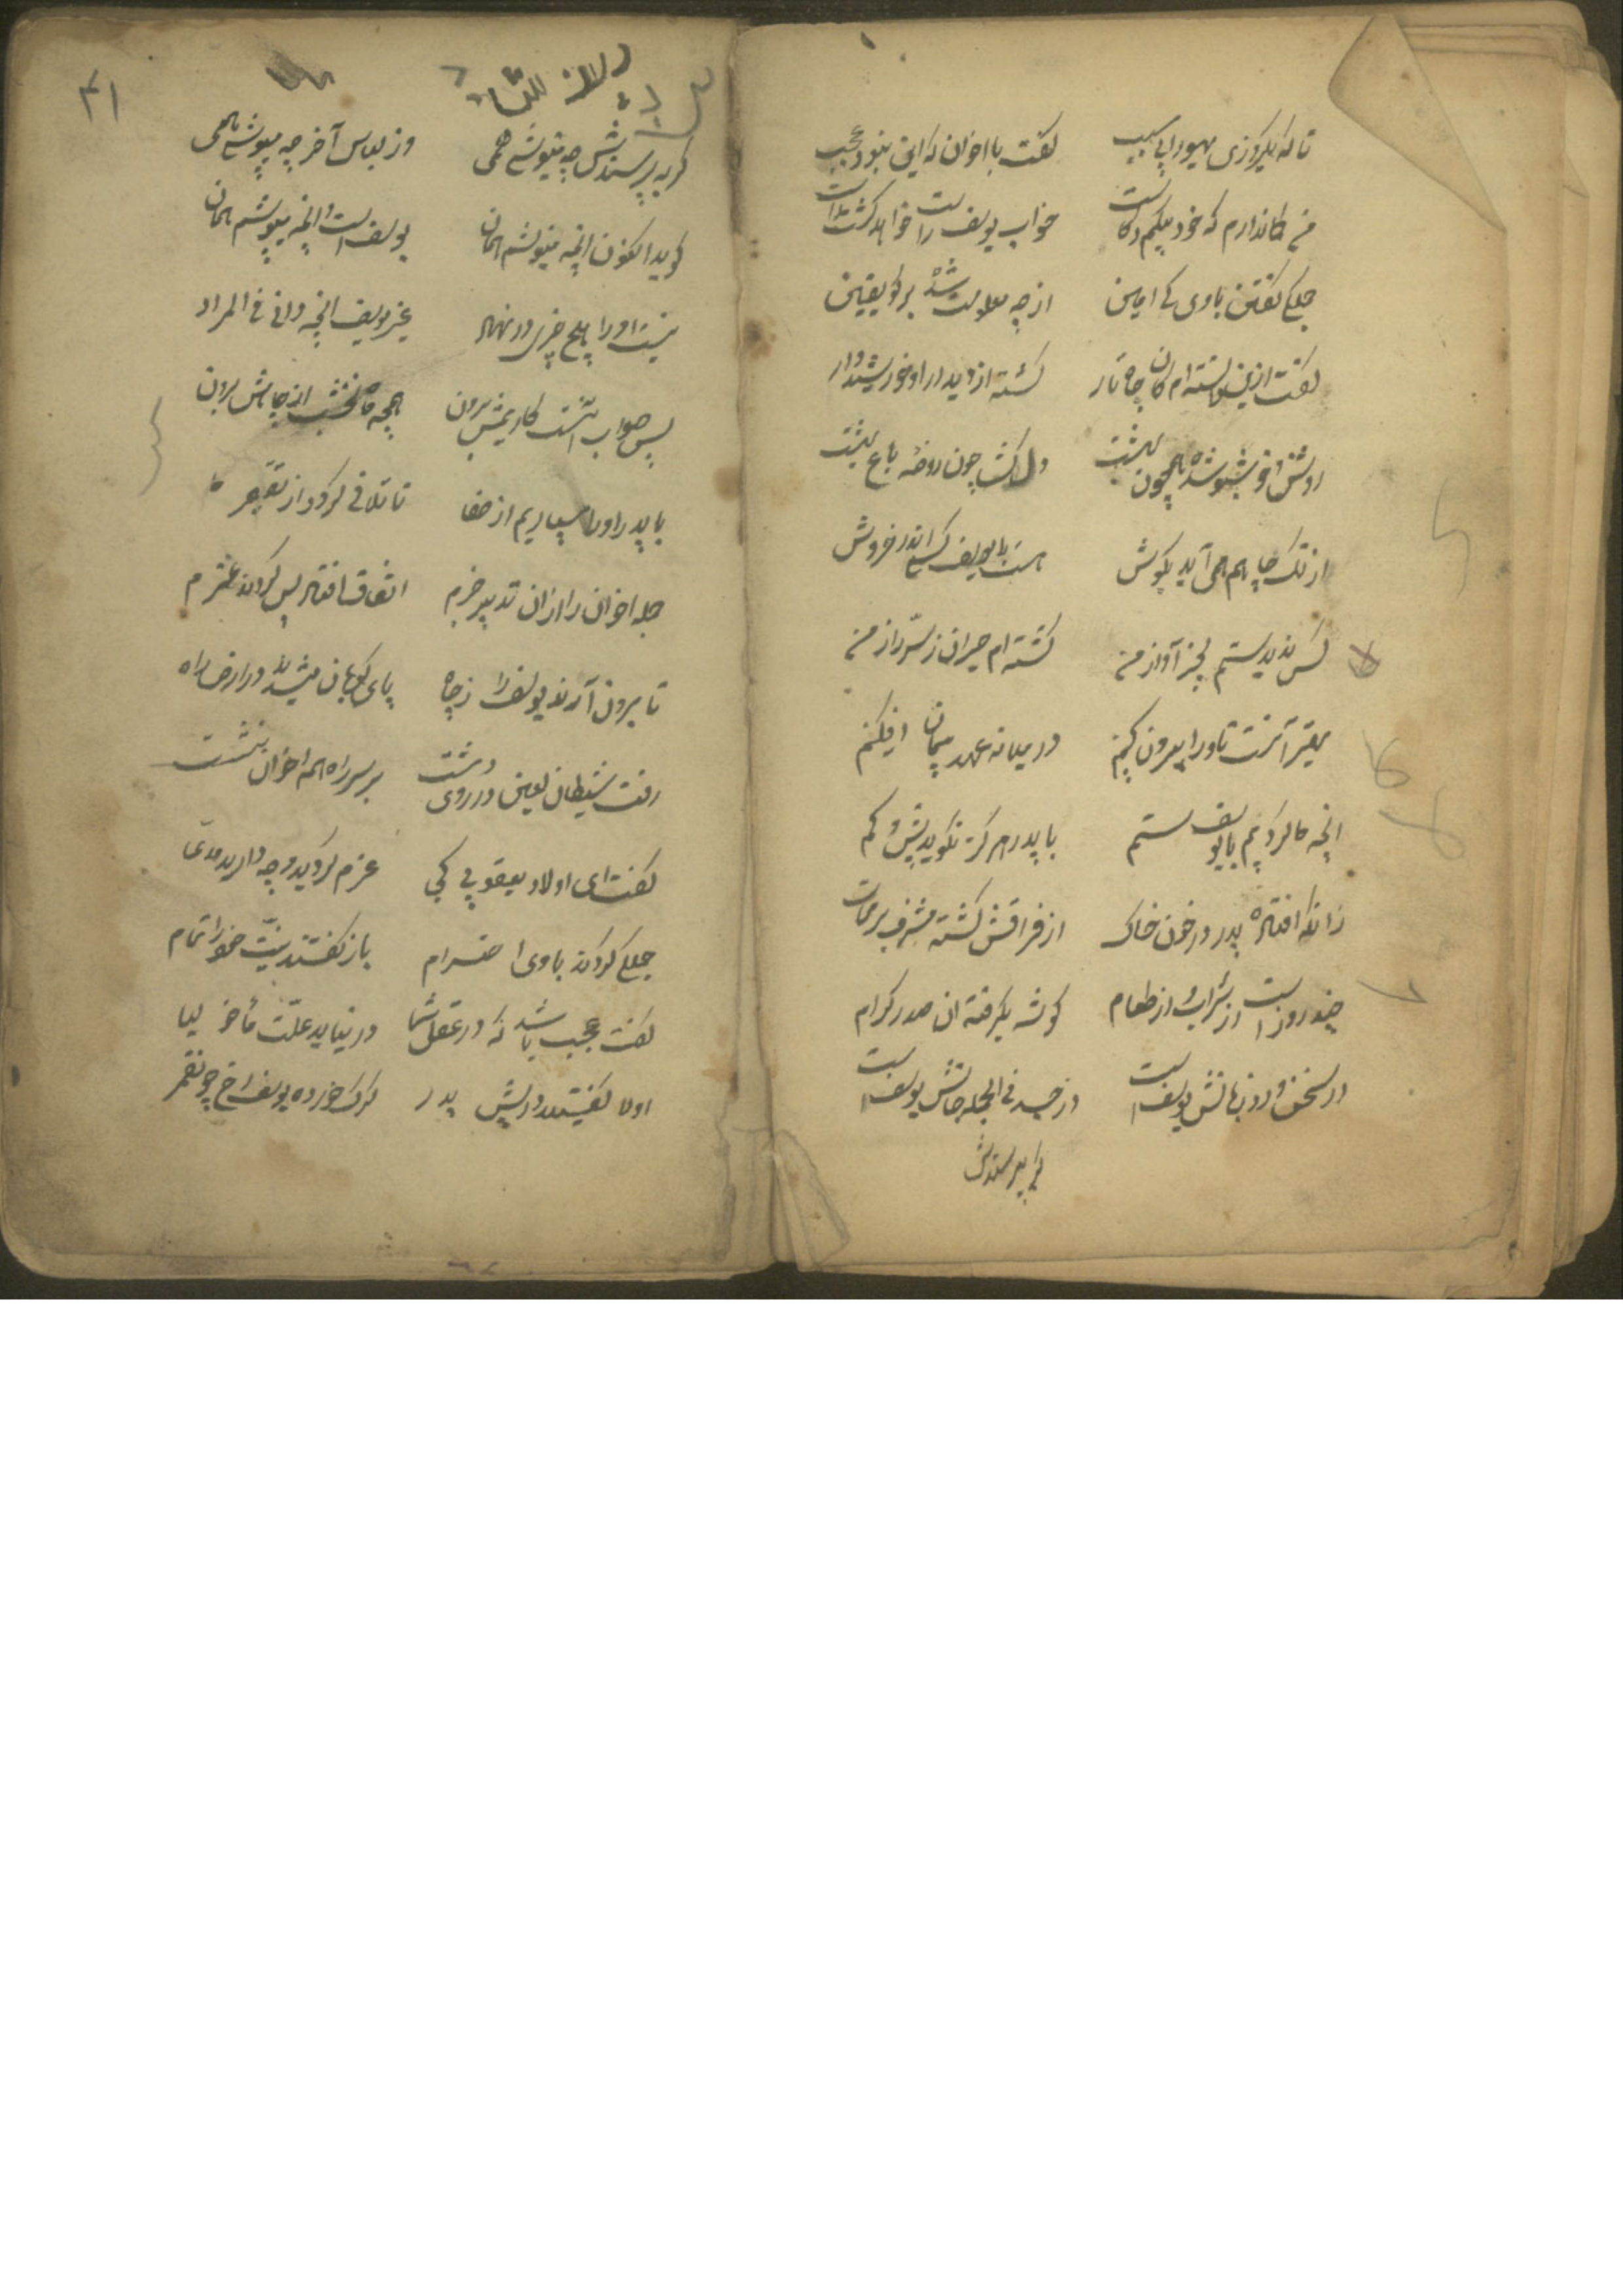 تا که یکروزی یهودا بی سبب گفت با اخوان که این نبود عجب
من کاندارم که خود بیکم و کاست خواب یوسف راست خواهد گشت راست
جملگی گفتن باوی کای امین از چه معلومت شده برکو یقین
گفت ازین دانسته ام کان چاه تار گشته از دیدار او خورشیدوار
روشن و خوشبو شده همچون بهشت دلکش چون روضه باغ بهشت
از تک چاهم همی آید بکوش هست با یوسف کسی اندر خروش
کس ندیدستم بجز آواز من گشته ام حیران ز سر راز من
بهتر آنست تا ورا بیرون کنیم در میانه عهد و پیمان افکنیم
انچه ما کردیم با یوسف ستم با پدر هرگز نگوید بیش و کم
زانکه افتاده پدر در خون خاک از فراقش گشته مشرف بر
چند روز است از شراب و از طعام گوشه بگرفته ان صدر کرام
در سخن ورد زبانش یوسف است در خرد فی الجمله جانش یوسف است
گر بپرسندش
۴۱
گر بپرسندش چه مینوشی همی وز لباس آخر چه میپوشی همی
گوید اکنون انچه مینوشم همان یوسف است و انچه میپوشم همان
نیست او را هیچ چیزی در نهاد غیر یوسف انچه دانی فی المراد
پس صواب آنست کاریمش برون همچه ماه نخشب از چاهش برون
با پدر او را سپاریم از صفا تا تلافی گردد از تقصیر ما
جمله اخوان را ازان تدبیر خرم اتفاق افتاد پس کردند عزم
تا برون آرند یوسف را ز چاه پای کوبان میشدند در ارض راه
رفت شیطان لعین در روی دشت بر سر راه همه اخوان نشست
گفت ای اولاد یعقوب نبی عزم کردید و چه دارید مدعی
جملگی کردند باوی احترام باز گفتند نیت خود را تمام
گفت عجب باشد که در عقل شما در نیاید علت ماخولیا
اولا گفتید در پیش پدر گرگ خورده یوسف رخ چو قمر